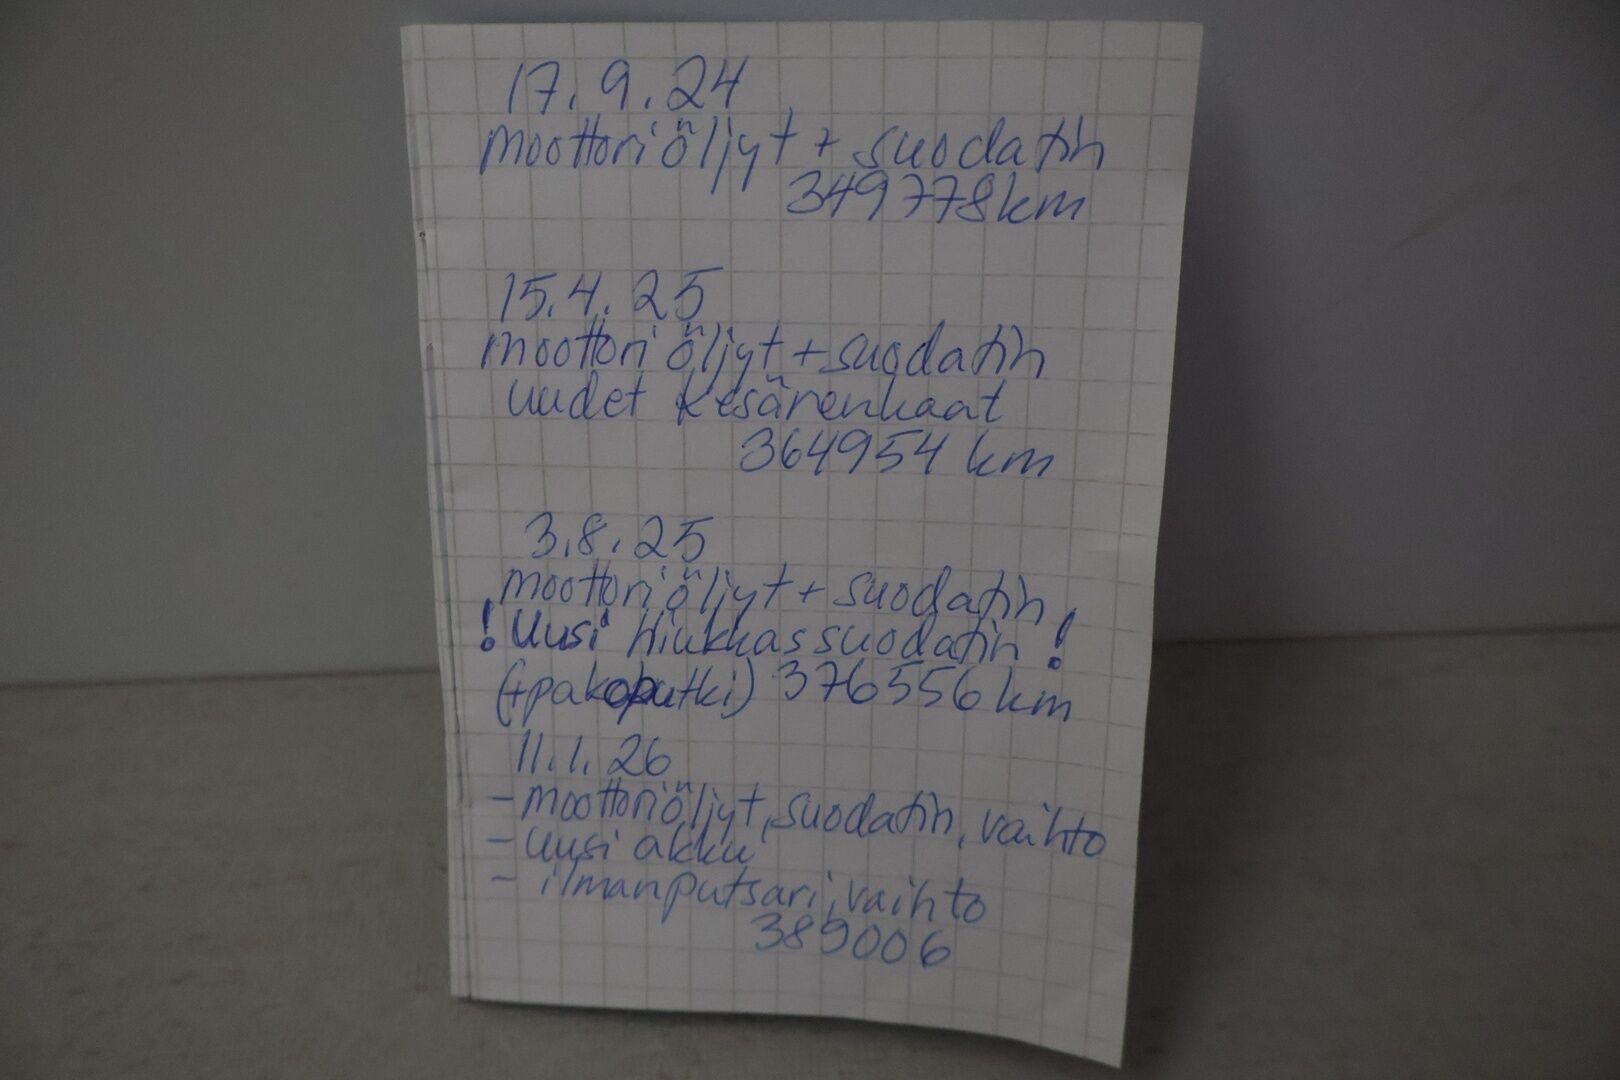 17.9.24
moottoriöljyt + suodatin
349778km
15.4.25
moottoriöljyt + suodatin
uudet kesärenkaat
364954 km
3.8.25
moottoriöljyt + suodatin
! Uusi hiukkassuodatin !
(+pakoputki) 376556 km
11.1.26
- moottoriöljyt, suodatin, vaihto
- uusi akku
- ilmanputsari, vaihto
389006